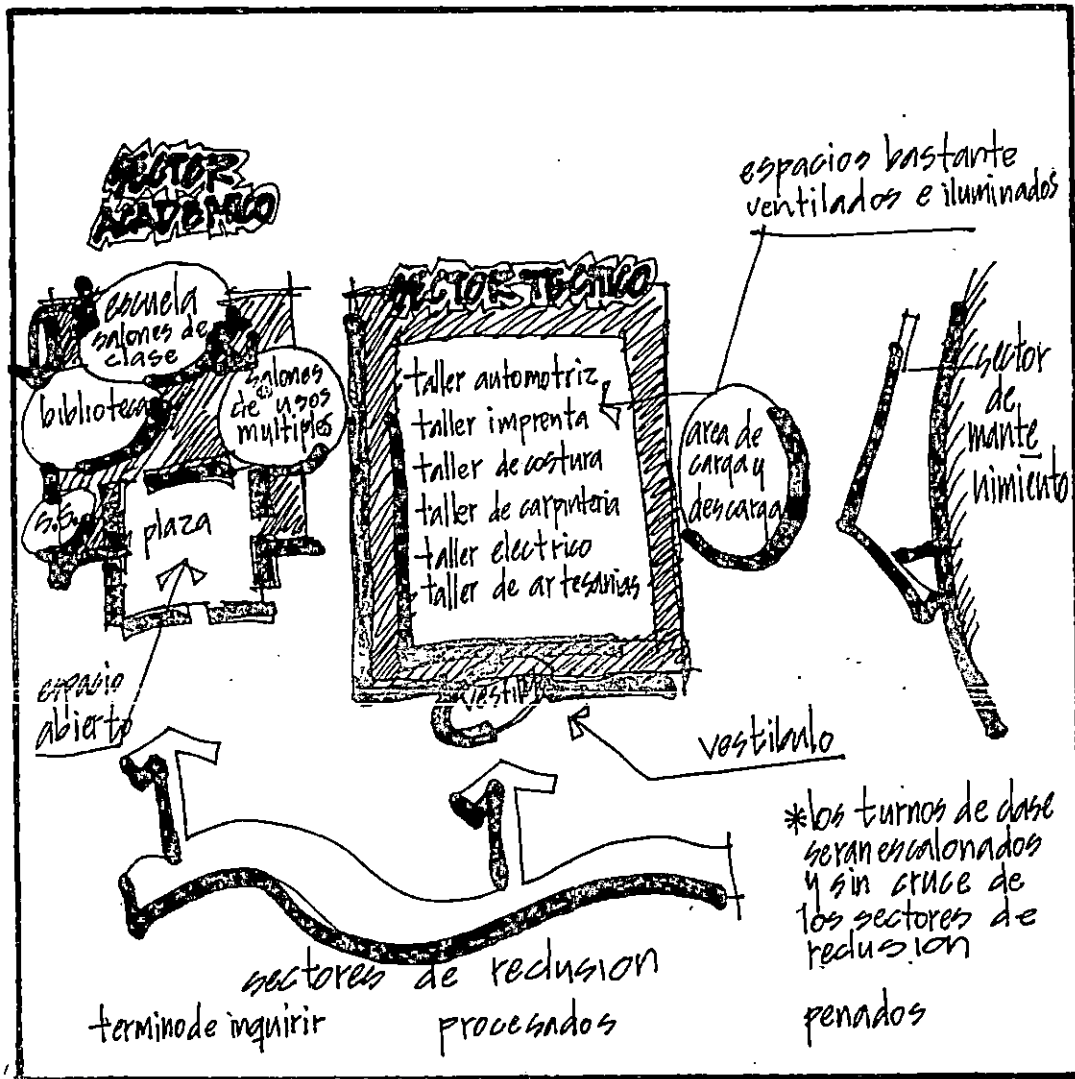 SECTOR
ACADEMICO
escuela
salones de
clase
biblioteca
salones
de usos
multiples
S.S.
plaza
espacio
abierto
SECTOR TECNICO
taller automotriz
taller imprenta
taller de costura
taller de carpinteria
taller electrico
taller de artesanias
vestib
vestibulo
espacios bastante
ventilados e iluminados
area de
carga y
descarga
sector
de
mante
nimiento
*los turnos de clase
seran escalonados
y sin cruce de
los sectores de
reclusion
sectores de reclusion
termino de inquirir
procesados
penados